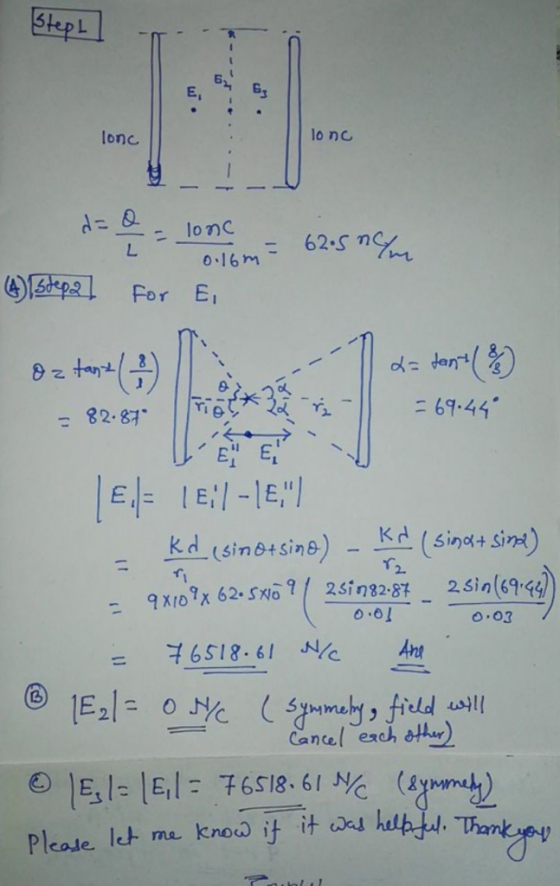 Step 1
E₁ E₂ E₃
10nC 10nC
λ = Q/L = 10nC/0.16m = 62.5 nC/m
(A) Step 2 For E₁
θ = tan⁻¹(8/1) α = tan⁻¹(8/3)
= 82.87° = 69.44°
θ θ r₁ α α r₂
E₁'' E₁'
|E₁| = |E₁'| - |E₁''|
= Kλ/r₁ (sinθ+sinθ) - Kλ/r₂ (sinα+sinα)
= 9×10⁹ × 62.5×10⁻⁹ (2sin82.87/0.01 - 2sin(69.44)/0.03)
= 76518.61 N/C Ans
(B) |E₂| = 0 N/C ( Symmetry, field will
cancel each other)
(C) |E₃| = |E₁| = 76518.61 N/C (symmetry)
Please let me know if it was helpful. Thank you